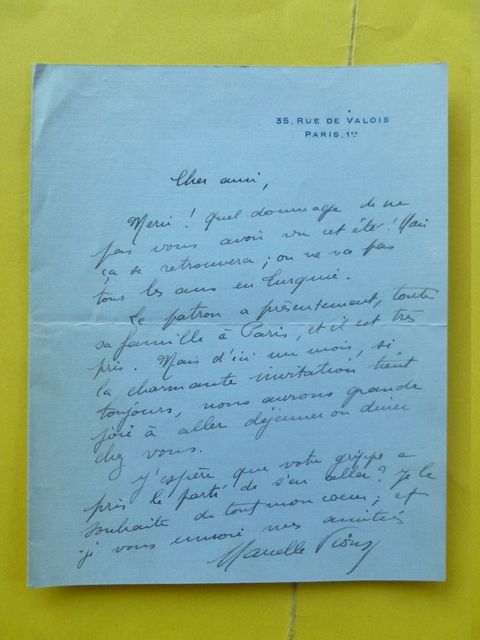 35, RUE DE VALOIS
PARIS. 1er
Cher ami,
Merci ! Quel dommage de ne
pas vous avoir vu cet été ! Mais
ça se retrouvera ; on ne va pas
tous les ans en Turquie.
Le patron a présentement, toute
sa famille à Paris, et il est très
pris. Mais d'ici un mois, si
la charmante invitation tient
toujours, nous aurons grande
joie à aller déjeuner ou diner
chez vous.
J'espère que votre grippe a
pris le parti de s'en aller ? Je le
souhaite de tout mon coeur ; et
je vous envoie mes amitiés
Marcelle